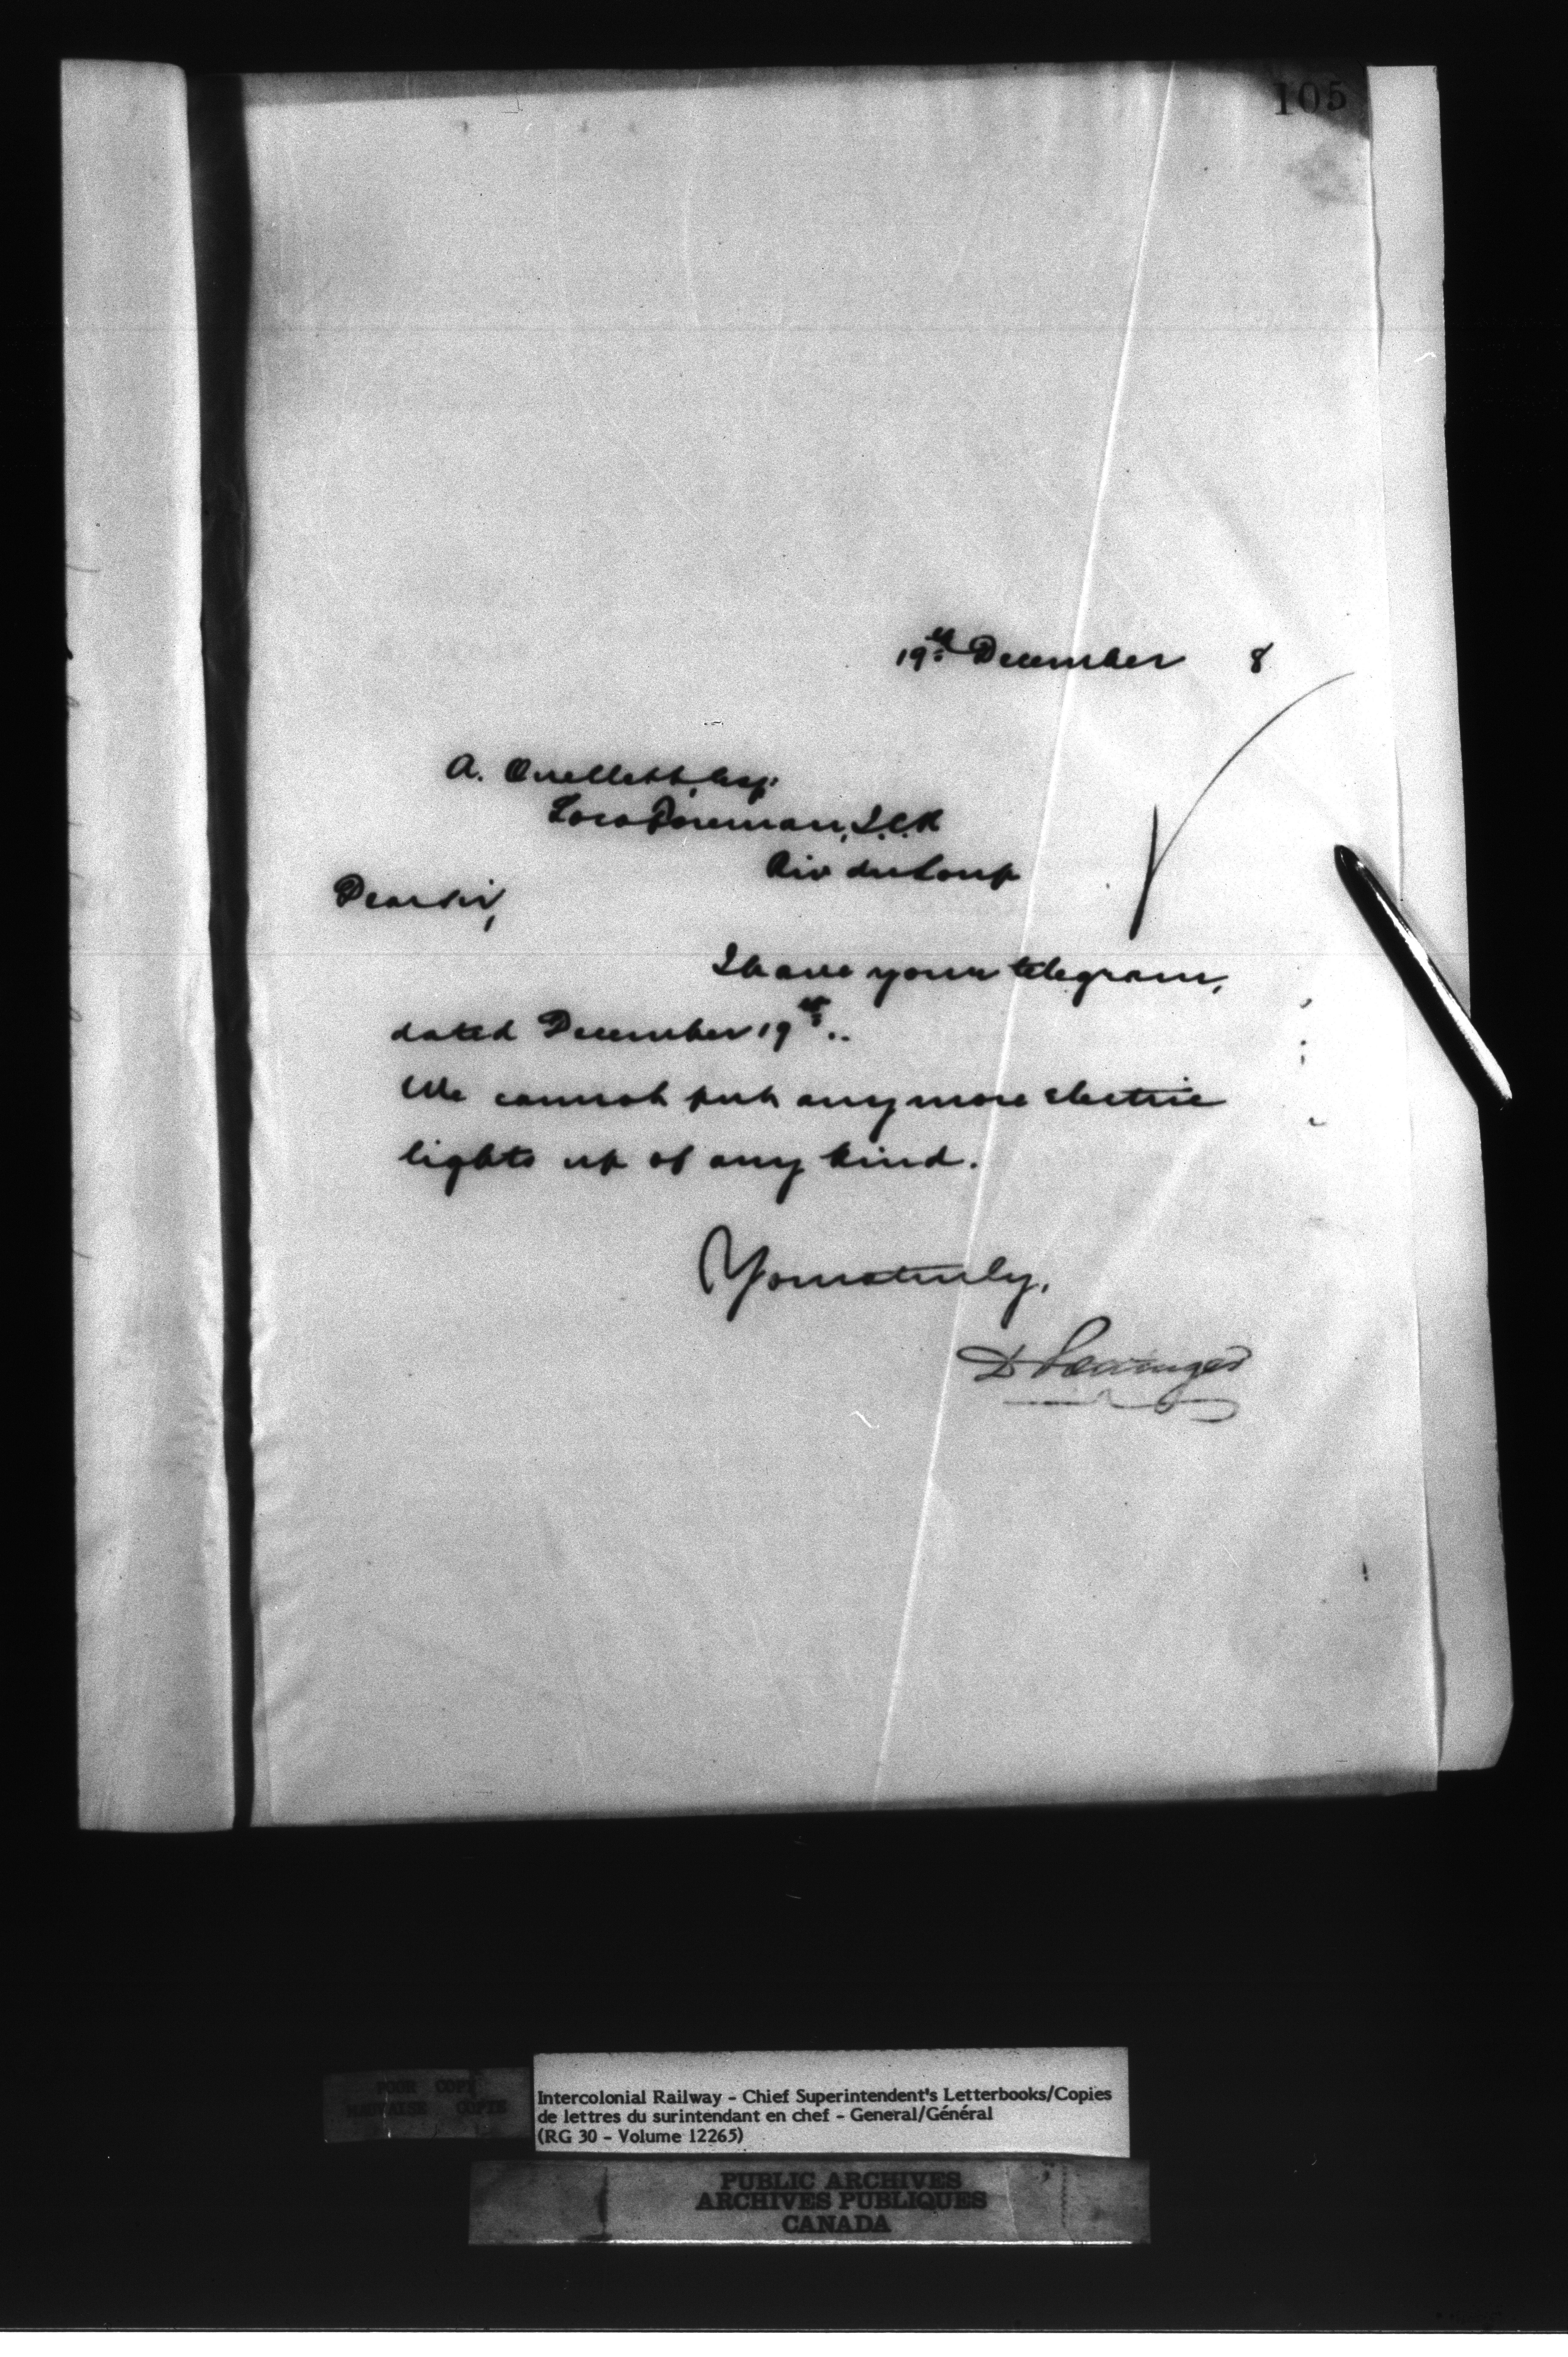 105
19th December 8
A. Ouellett, Esq.
Loco Foreman, I.C.R
Riv du Loup
Dear Sir,
I have your telegram,
dated December 19th..
We cannot put any more electric
lights up of any kind.
Yours truly,
D Pottinger
POOR COPY
MAUVAISE COPIE
Intercolonial Railway - Chief Superintendent's Letterbooks/Copies
de lettres du surintendant en chef - General/Général
(RG 30 - Volume 12265)
PUBLIC ARCHIVES
ARCHIVES PUBLIQUES
CANADA